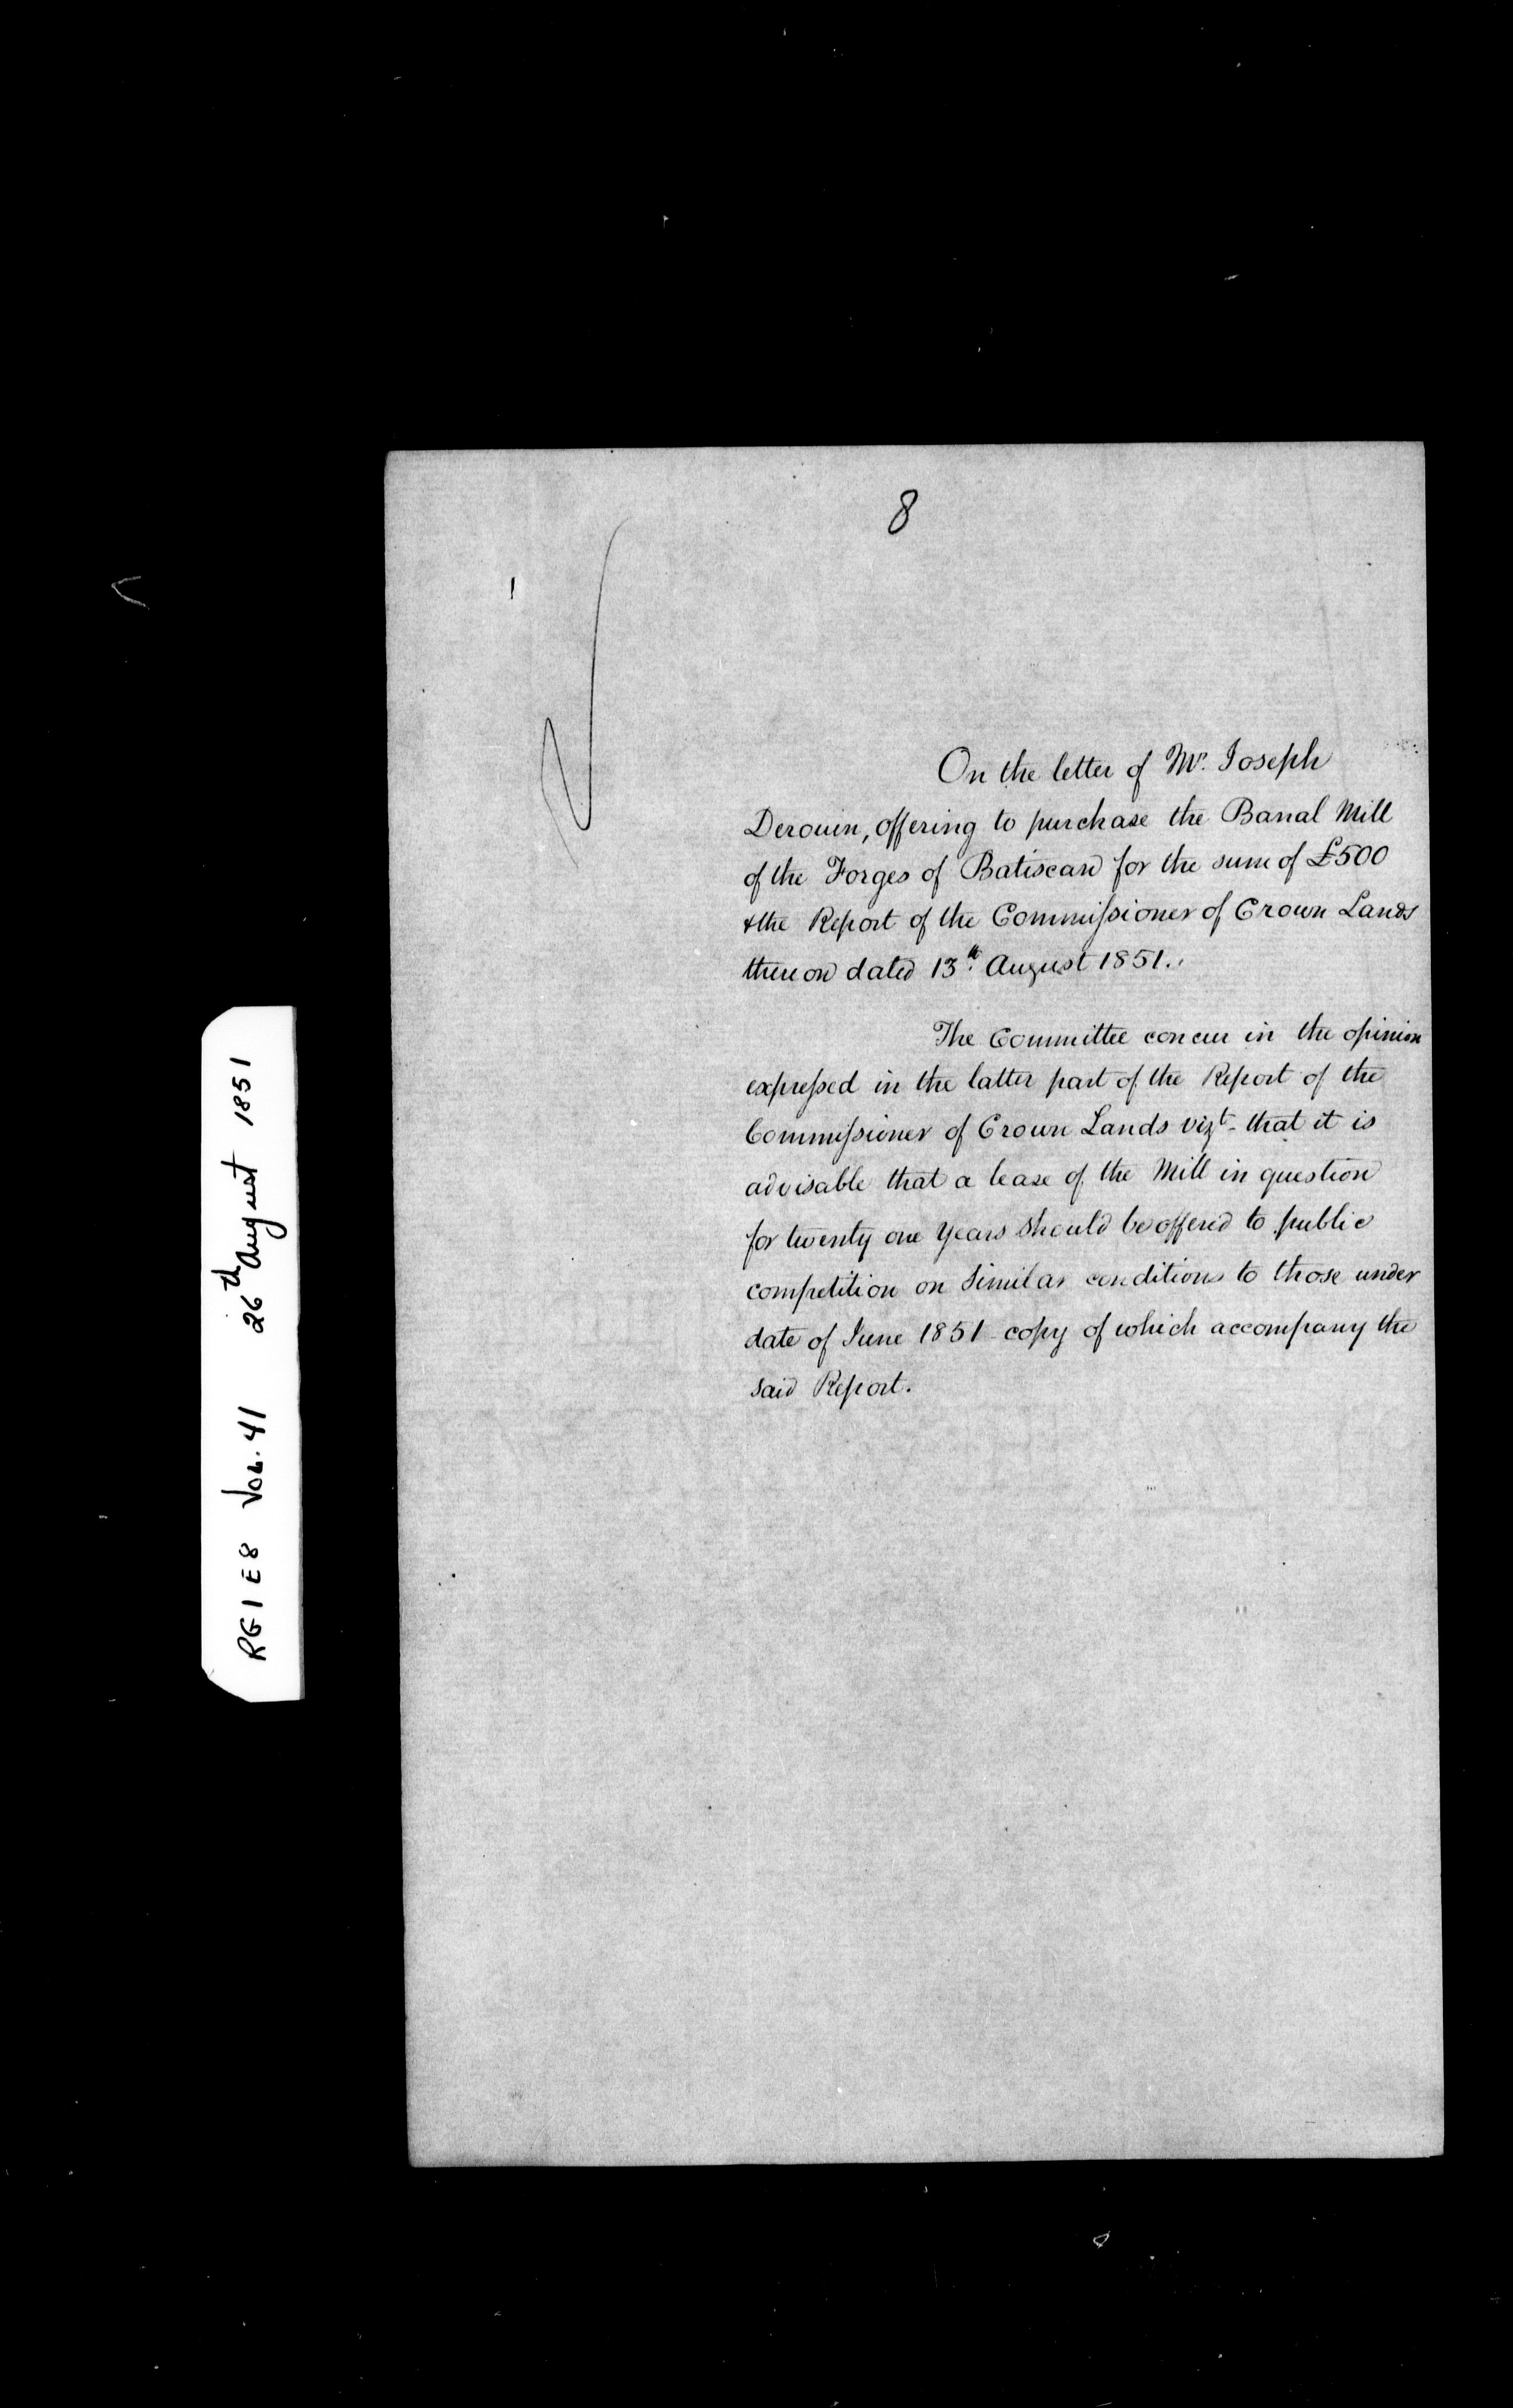 8
On the letter of Mr. Joseph
Derouin, offering to purchase the Banal Mill
of the Forges of Batiscan for the sum of £500
& the Report of the Commissioner of Crown Lands
thereon dated 13th August 1851.
The Committee concur in the opinion
expressed in the latter part of the Report of the
Commissioner of Crown Lands vizt. that it is
advisable that a lease of the Mill in question
for twenty one years should be offered to public
competition on similar conditions to those under
date of June 1851 copy of which accompany the
said Report.
RG 1 E8 Vol. 41 26th August 1851